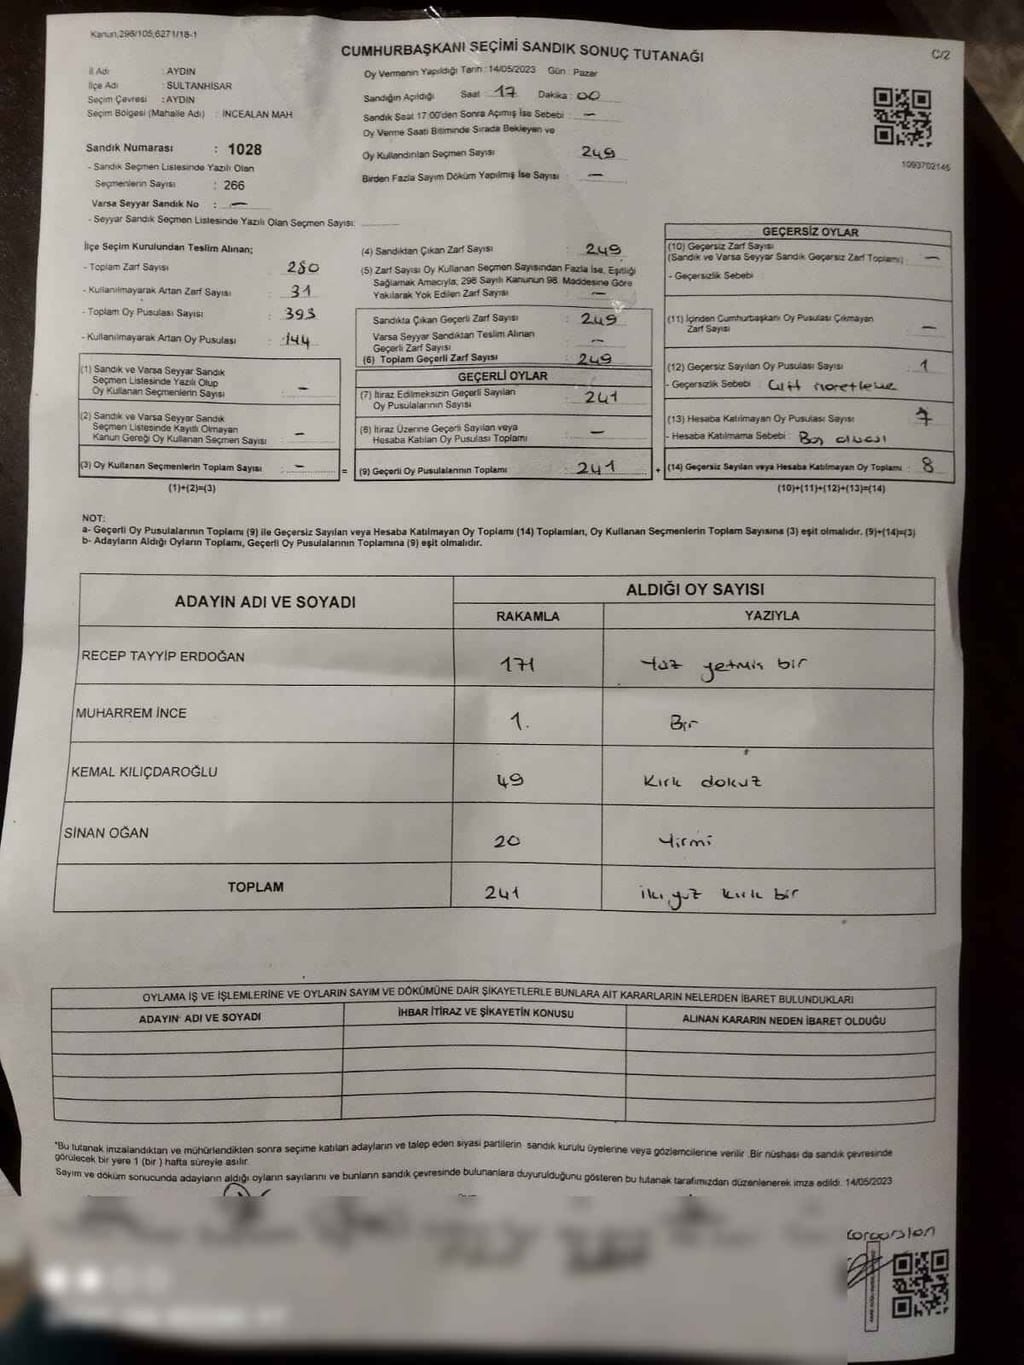 Kanun,298/105,6271/18-1
C/2
CUMHURBAŞKANI SEÇİMİ SANDIK SONUÇ TUTANAĞI
İl Adı : AYDIN
İlçe Adı : SULTANHİSAR
Seçim Çevresi : AYDIN
Seçim Bölgesi (Mahalle Adı) : İNCEALAN MAH
Sandık Numarası : 1028
- Sandık Seçmen Listesinde Yazılı Olan
Seçmenlerin Sayısı : 266
Varsa Seyyar Sandık No : —
- Seyyar Sandık Seçmen Listesinde Yazılı Olan Seçmen Sayısı:
Oy Vermenin Yapıldığı Tarih : 14/05/2023 Gün : Pazar
Sandığın Açıldığı Saat 17 Dakika : 00
Sandık Saat 17:00'den Sonra Açımış İse Sebebi : —
Oy Verme Saati Bitiminde Sırada Bekleyen ve
Oy Kullandırılan Seçmen Sayısı 249
Birden Fazla Sayım Döküm Yapılmış İse Sayısı —
1093702146
İlçe Seçim Kurulundan Teslim Alınan;
- Toplam Zarf Sayısı : 280
- Kullanılmayarak Artan Zarf Sayısı : 31
- Toplam Oy Pusulası Sayısı : 393
- Kullanılmayarak Artan Oy Pusulası : 144
(1) Sandık ve Varsa Seyyar Sandık
Seçmen Listesinde Yazılı Olup
Oy Kullanan Seçmenlerin Sayısı : —
(2) Sandık ve Varsa Seyyar Sandık
Seçmen Listesinde Kayıtlı Olmayan
Kanun Gereği Oy Kullanan Seçmen Sayısı : —
(3) Oy Kullanan Seçmenlerin Toplam Sayısı : — =
(1)+(2)=(3)
(4) Sandıktan Çıkan Zarf Sayısı : 249
(5) Zarf Sayısı Oy Kullanan Seçmen Sayısından Fazla İse, Eşitliği
Sağlamak Amacıyla; 298 Sayılı Kanunun 98. Maddesine Göre
Yakılarak Yok Edilen Zarf Sayısı : —
Sandıkta Çıkan Geçerli Zarf Sayısı : 249
Varsa Seyyar Sandıktan Teslim Alınan
Geçerli Zarf Sayısı : —
(6) Toplam Geçerli Zarf Sayısı : 249
GEÇERLİ OYLAR
(7) İtiraz Edilmeksizin Geçerli Sayılan
Oy Pusulalarının Sayısı : 241
(8) İtiraz Üzerine Geçerli Sayılan veya
Hesaba Katılan Oy Pusulası Toplamı : —
(9) Geçerli Oy Pusulalarının Toplamı : 241 +
GEÇERSİZ OYLAR
(10) Geçersiz Zarf Sayısı
(Sandık ve Varsa Seyyar Sandık Geçersiz Zarf Toplamı) : —
- Geçersizlik Sebebi :
(11) İçinden Cumhurbaşkanı Oy Pusulası Çıkmayan
Zarf Sayısı : —
(12) Geçersiz Sayılan Oy Pusulası Sayısı : 1
- Geçersizlik Sebebi : Çift
(13) Hesaba Katılmayan Oy Pusulası Sayısı : 7
- Hesaba Katılmama Sebebi : Boş
(14) Geçersiz Sayılan veya Hesaba Katılmayan Oy Toplamı : 8
(10)+(11)+(12)+(13)=(14)
NOT:
a- Geçerli Oy Pusulalarının Toplamı (9) ile Geçersiz Sayılan veya Hesaba Katılmayan Oy Toplamı (14) Toplamları, Oy Kullanan Seçmenlerin Toplam Sayısına (3) eşit olmalıdır. (9)+(14)=(3)
b- Adayların Aldığı Oyların Toplamı, Geçerli Oy Pusulalarının Toplamına (9) eşit olmalıdır.
ADAYIN ADI VE SOYADI
ALDIĞI OY SAYISI
RAKAMLA YAZIYLA
RECEP TAYYİP ERDOĞAN 171 Yüz yetmiş bir
MUHARREM İNCE 1. Bir
KEMAL KILIÇDAROĞLU 49 Kırk dokuz
SİNAN OĞAN 20 Yirmi
TOPLAM 241 İki yüz kırk bir
OYLAMA İŞ VE İŞLEMLERİNE VE OYLARIN SAYIM VE DÖKÜMÜNE DAİR ŞİKAYETLERLE BUNLARA AİT KARARLARIN NELERDEN İBARET BULUNDUKLARI
ADAYIN ADI VE SOYADI
İHBAR İTİRAZ VE ŞİKAYETİN KONUSU
ALINAN KARARIN NEDEN İBARET OLDUĞU
*Bu tutanak imzalandıktan ve mühürlendikten sonra seçime katılan adayların ve talep eden siyasi partilerin sandık kurulu üyelerine veya gözlemcilerine verilir. Bir nüshası da sandık çevresinde
görülecek bir yere 1 (bir) hafta süreyle asılır.
Sayım ve döküm sonucunda adayların aldığı oyların sayılarını ve bunların sandık çevresinde bulunanlara duyurulduğunu gösteren bu tutanak tarafımızdan düzenlenerek imza edildi. 14/05/2023